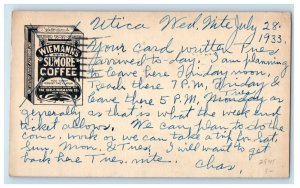 Utica Wed. Nite July 28.
1933.
Your card written Tues
arrived to-day. I am planning
to leave here Sunday noon,
reach there 7 P.M., Sunday &
leave there 5 P.M. Monday as
generally as that is what the week end
ticket allows. We can plan to do the
Conc. work or we can take a trip for
Mon. & Tues, I will want to get
back here Tues. nite. Chas.
WIEMANN'S
SLMORE
COFFEE